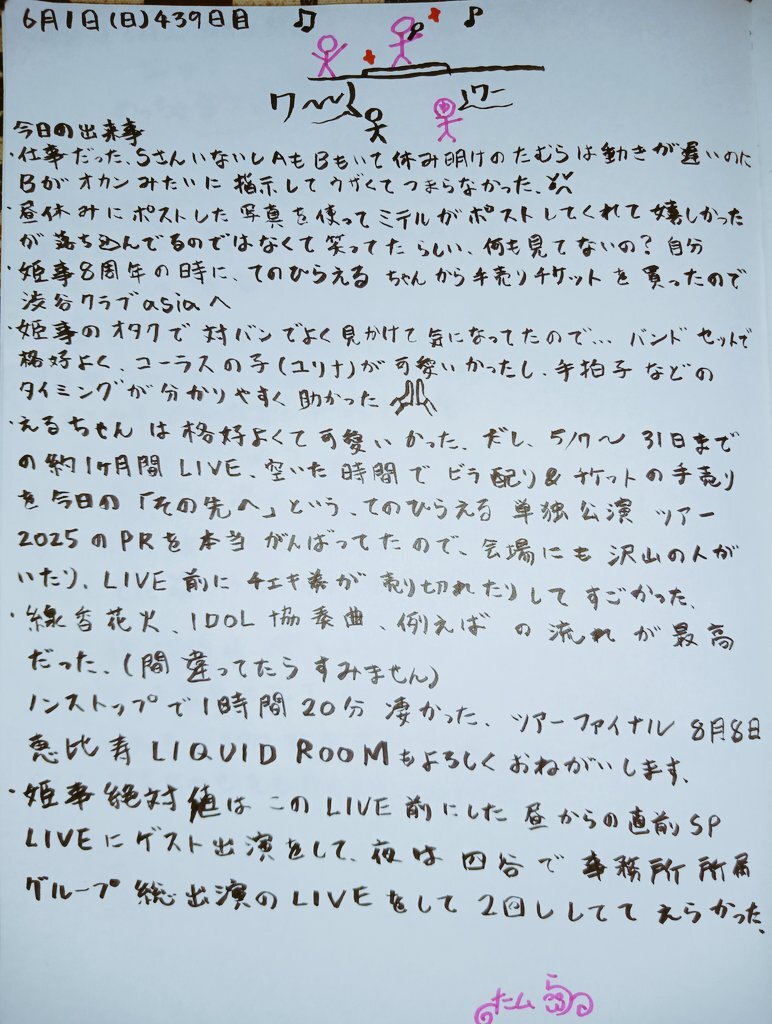 6月1日(日)439日目
ワ〜〜
ワー
今日の出来事
・仕事だった、SさんいないしAもBもいて休み明けのたむらは動きが遅いのに
Bがオカンみたいに指示してウザくてつまらなかった、
・昼休みにポストした写真を使ってミテルがポストしてくれて嬉しかった
が落ち込んでるのではなくて笑ってたらしい、何も見てないの?自分
・姫事8周年の時に、てのひらえるちゃんから手売りチケットを買ったので
渋谷クラブasiaへ
・姫事のオタクで対バンでよく見かけて気になってたので… バンドセットで
格好よく、コーラスの子(ユリナ)が可愛いかったし、手拍子などの
タイミングが分かりやすく助かった
・えるちゃんは格好よくて可愛いかった、だし、5/7〜31日まで
の約1ヶ月間LIVE、空いた時間でビラ配り&チケットの手売り
を今日の「その先へ」という、てのひらえる単独公演ツアー
2025のPRを本当がんばってたので、会場にも沢山の人が
いたり、LIVE前にチェキ券が売り切れたりしてすごかった、
・線香花火、IDOL協奏曲、例えばの流れが最高
だった、(間違ってたらすみません)
ノンストップで1時間20分凄かった、ツアーファイナル8月8日
恵比寿LIQUID ROOMもよろしくおねがいします、
・姫事絶対値はこのLIVE前にした昼からの直前SP
LIVEにゲスト出演をして、夜は四谷で事務所所属
グループ総出演のLIVEをして2回ししててえらかった、
たむら